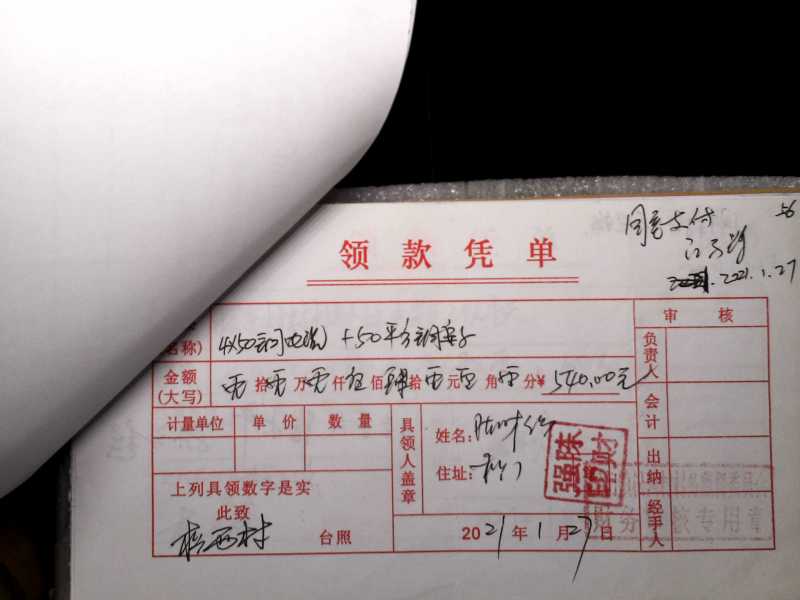 56
同意支付
2021.1.27
领款凭单
审核
名称) 4×50铜电缆 +50平方铜鼻子
负责人
金额(大写) 零拾零万零仟伍佰肆拾零元零角零分¥ 540.00元
会计
计量单位 单价 数量
具领人盖章
姓名:
住址:
出纳
上列具领数字是实
此致
西村 台照
2021年1月27日
经手人
专用章